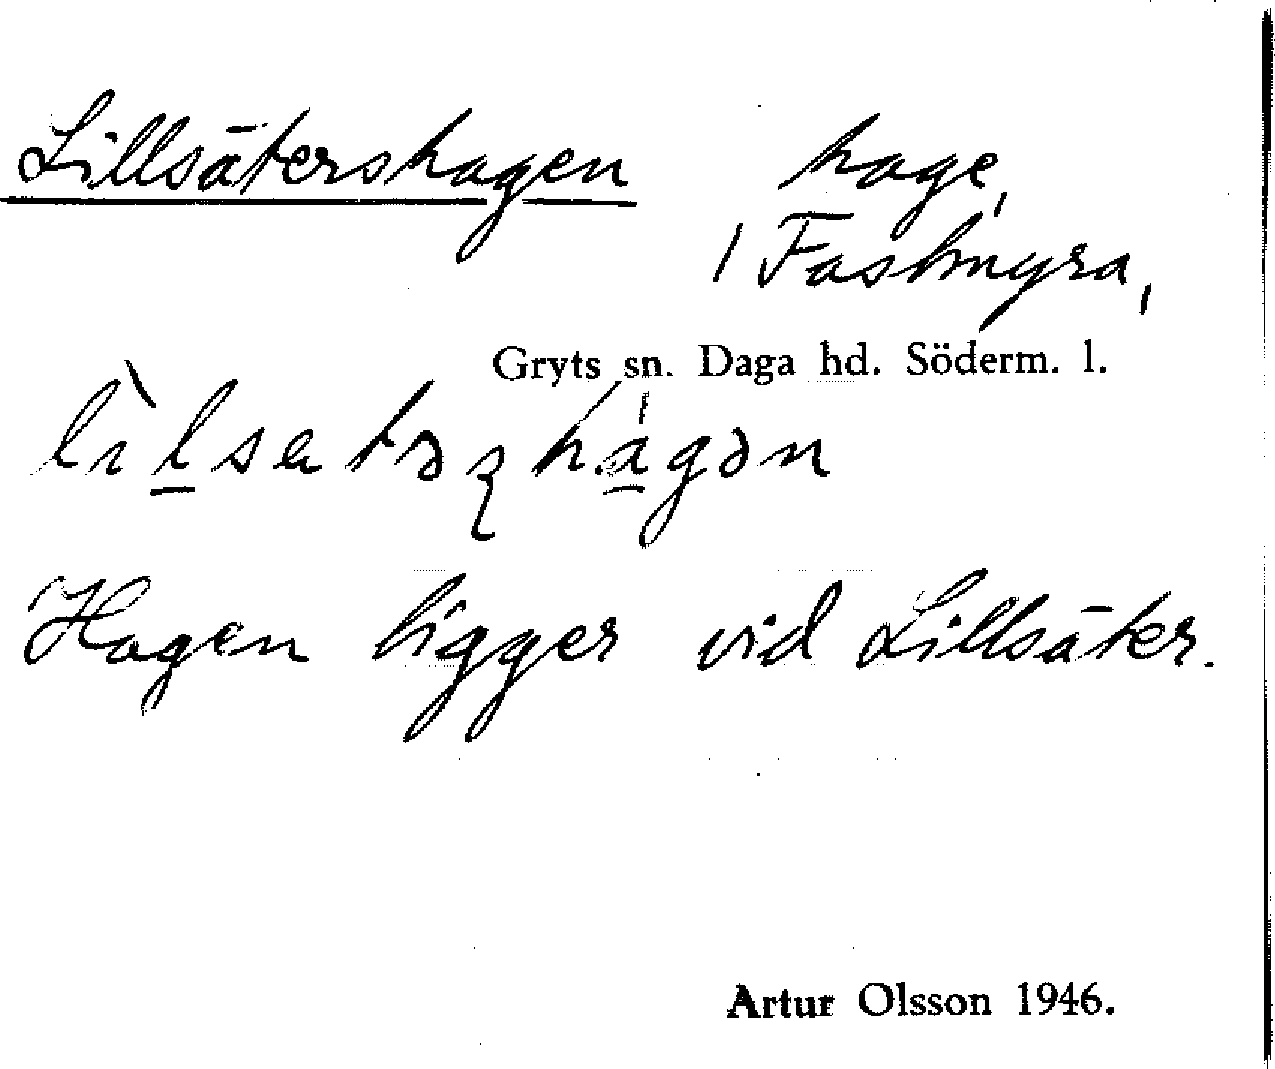 Lillsätershagen hage,
1 Fastmyra,
Gryts sn. Daga hd. Söderm. l.
Hagen ligger vid Lillsäter.
Artur Olsson 1946.